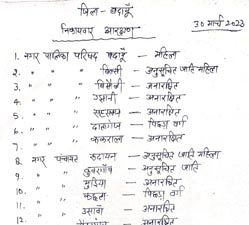 जिला - बदायूँ
निकायवार आरक्षण
30 मार्च 2023
1. नगर पालिका परिषद बदायूँ - महिला
2. " " " - अनुसूचित जाति महिला
3. " " " बिसौली - अनारक्षित
4. " " " उझानी - अनारक्षित
5. " " " सहसवान - अनारक्षित
6. " " " दातागंज - पिछड़ा वर्ग
7. " " " ककराला - अनारक्षित
8. नगर पंचायत रुदायन - अनुसूचित जाति महिला
9. " " कुंवरगाँव - अनुसूचित जाति
10. " " मुडिया - अनारक्षित
11. " " - पिछड़ा वर्ग
12. " " उसावाँ - अनारक्षित
- अनारक्षित